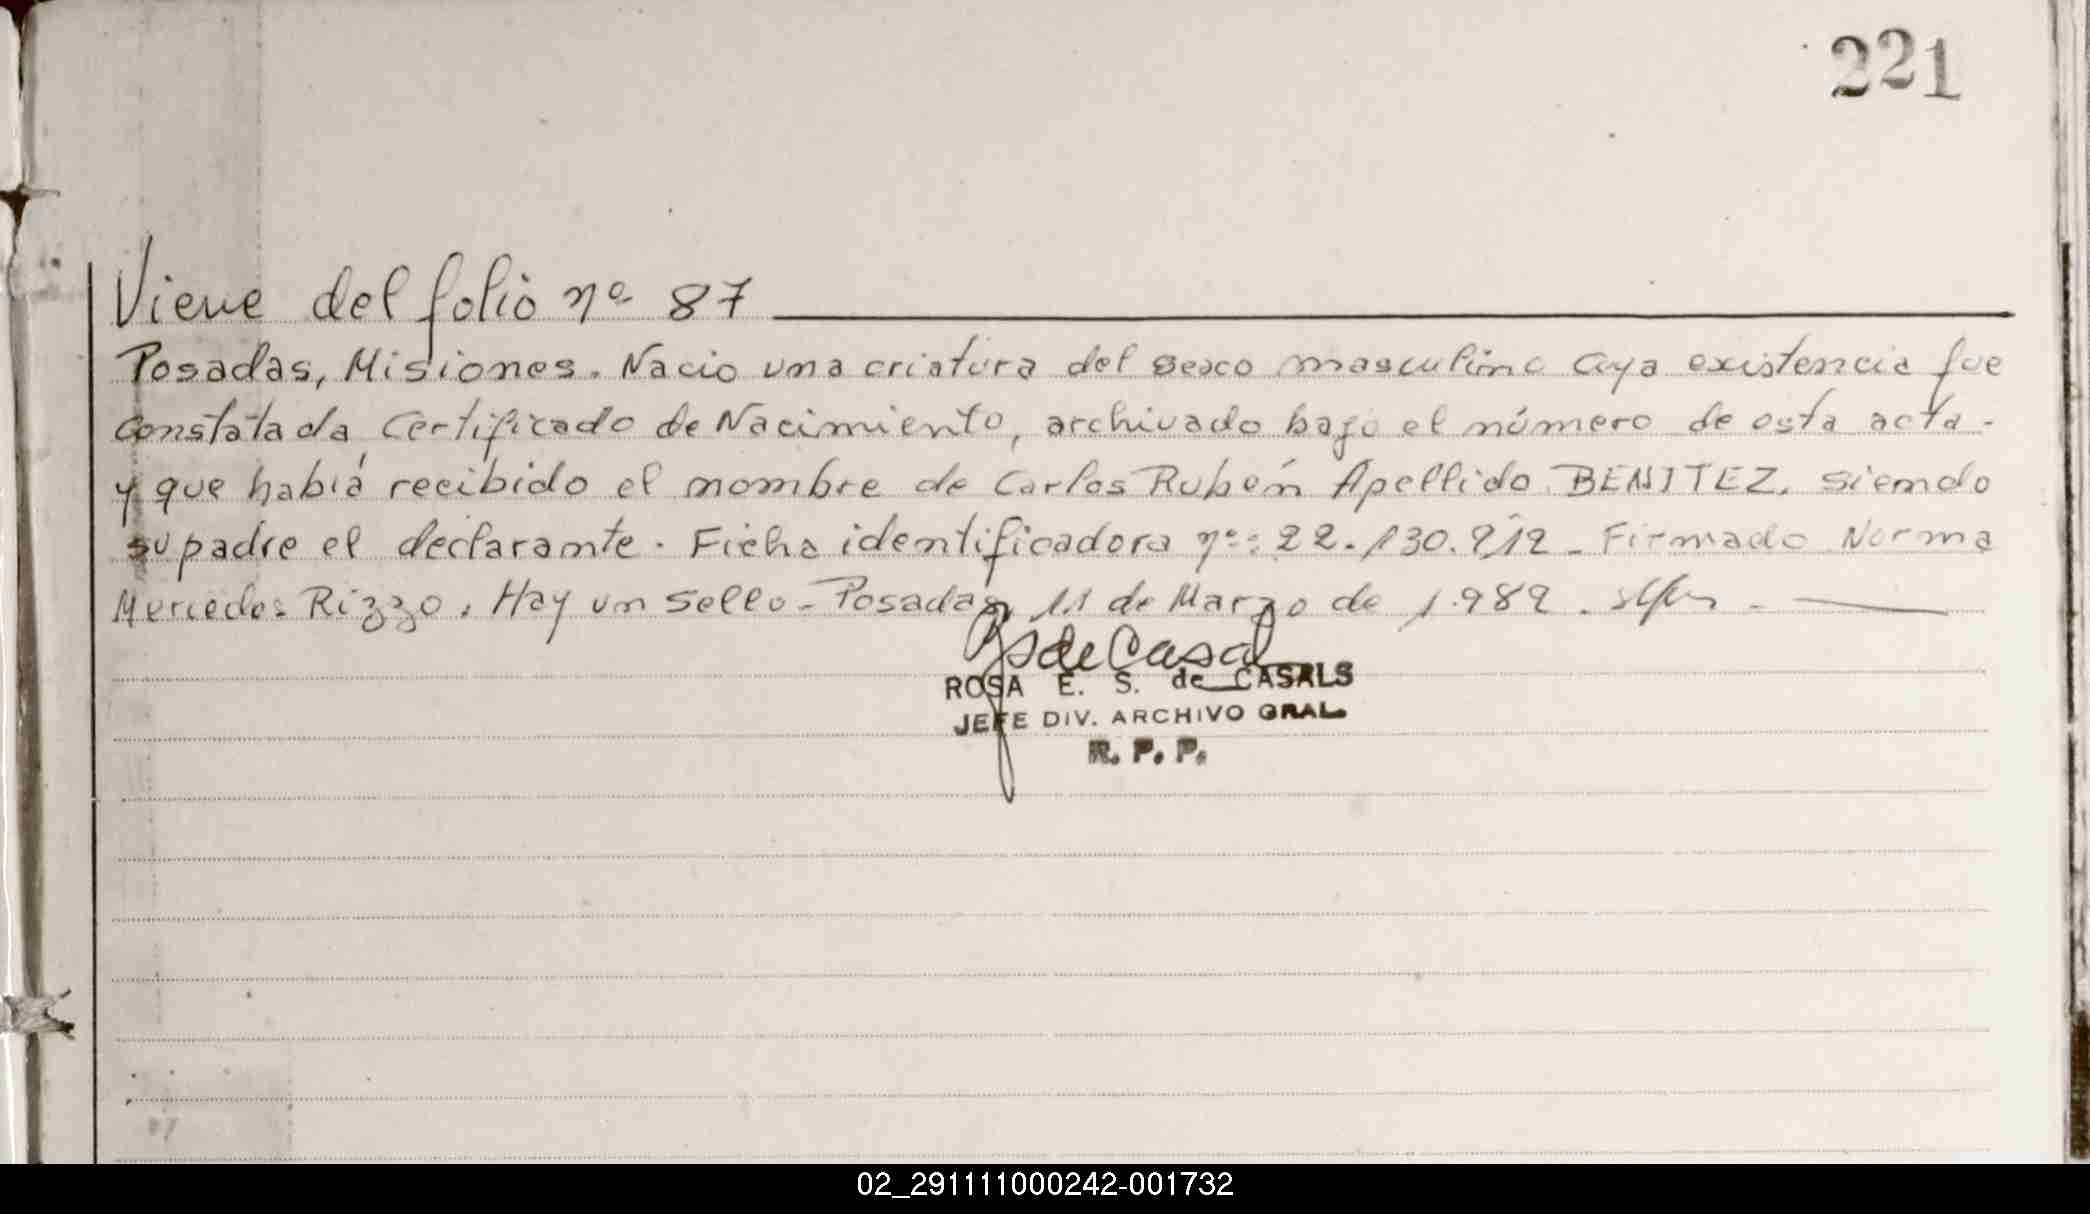 221
Viene del folio nº 87
Posadas, Misiones. Nacio una criatura del sexo masculino cuya existencia fue
constatada, Certificado de Nacimiento, archivado bajo el número de esta acta -
y que había recibido el nombre de Carlos Rubén Apellido BENITEZ, siendo
su padre el declarante. Ficha identificadora nº: 22.130.212 - Firmado Norma
Mercedes Rizzo. Hay un sello - Posadas, 11 de Marzo de 1.982.
de Casal
ROSA E. S. de CASALS
JEFE DIV. ARCHIVO GRAL.
R. P. P.
02_291111000242-001732